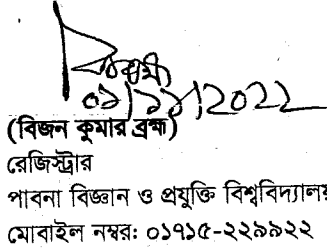 ০১/১১/2022
(বিজন কুমার ব্রহ্ম)
রেজিস্ট্রার
পাবনা বিজ্ঞান ও প্রযুক্তি বিশ্ববিদ্যালয়
মোবাইল নম্বর: ০১৭১৫-২২৯৯২২